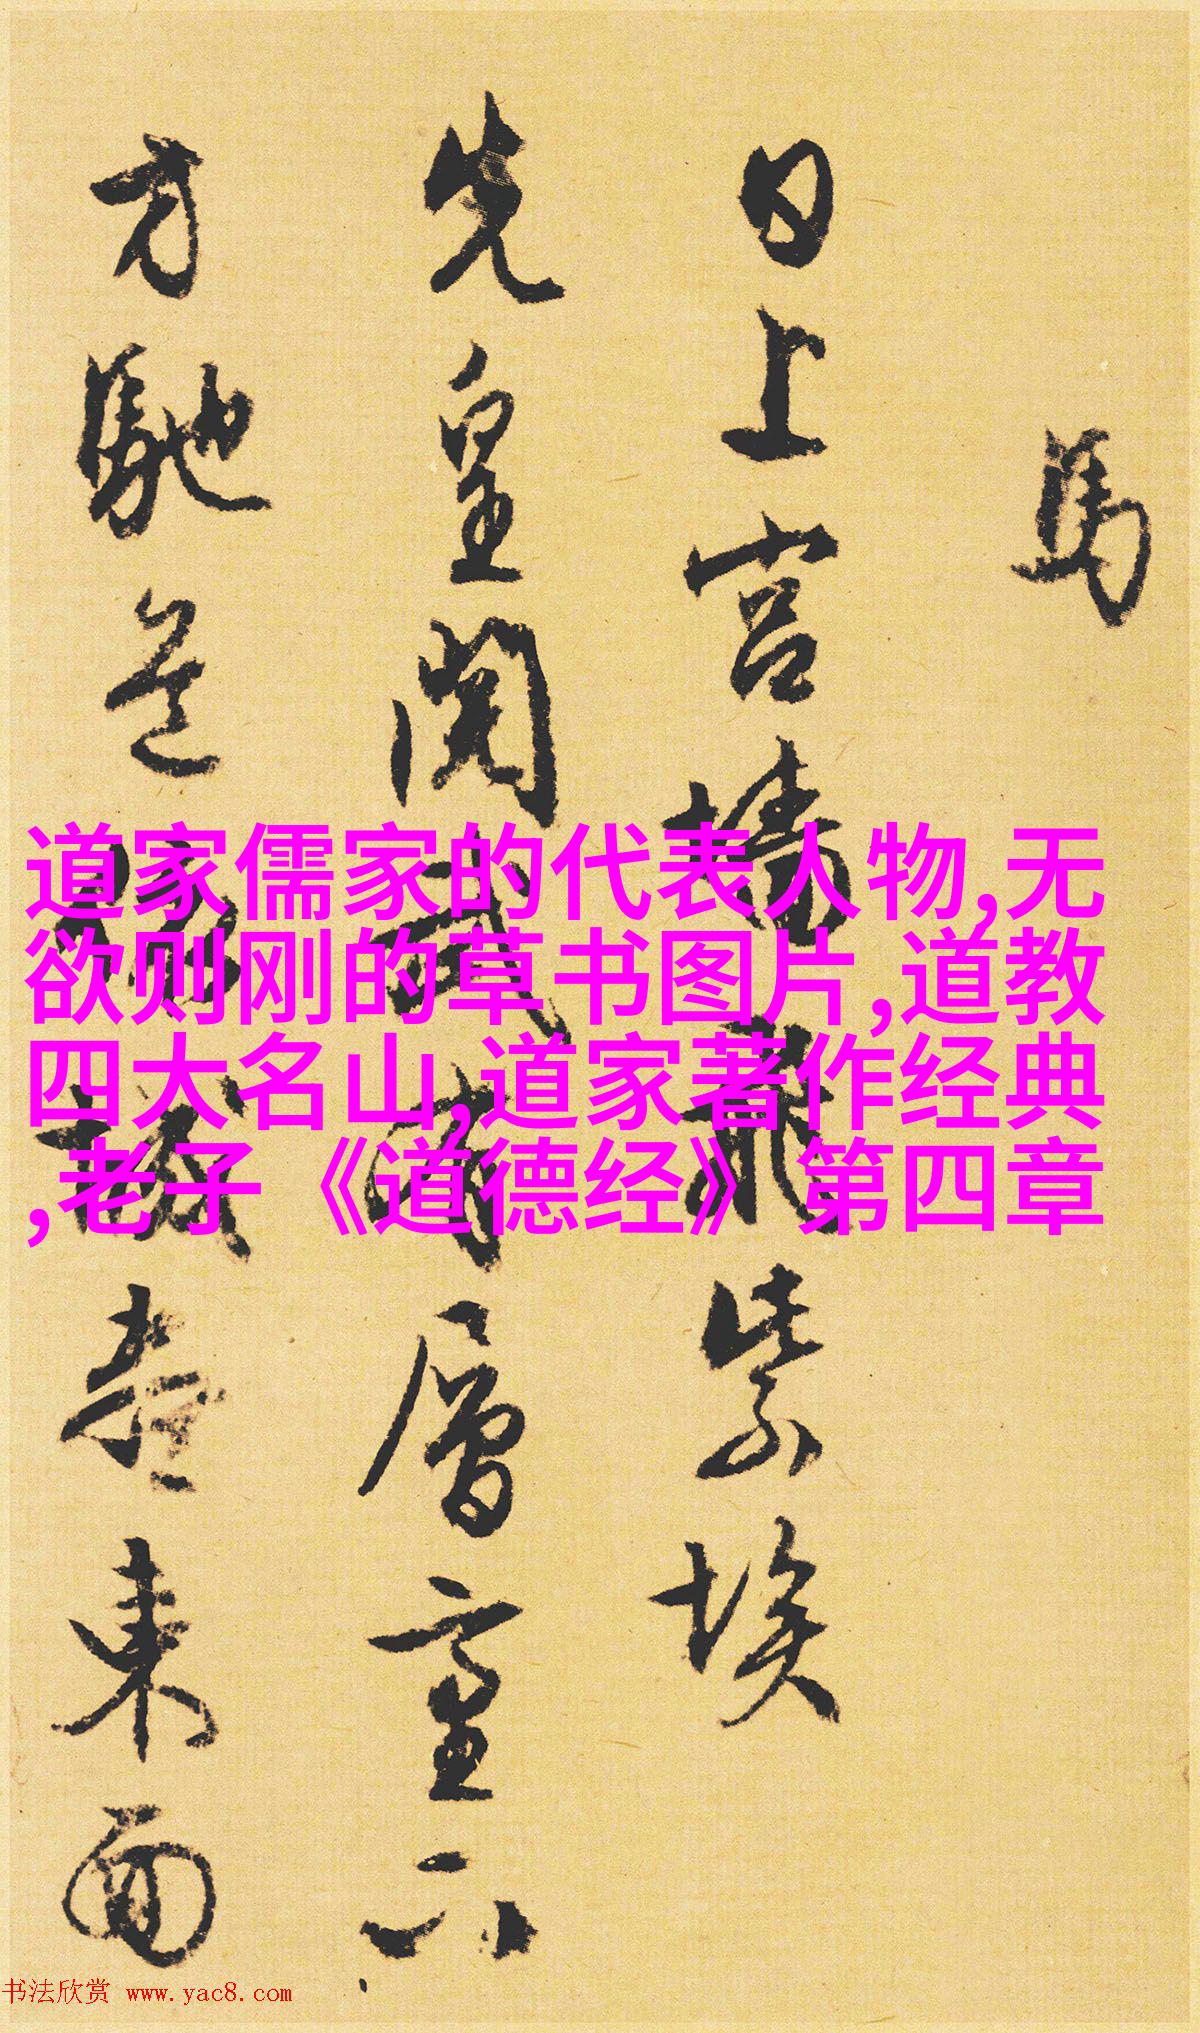 馬
日上宮墻紫埃
先皇閱武有層臺下
方馳道城盡東面
道家儒家的代表人物,无
欲则刚的草书图片,道教
四大名山,道家著作经典
,老子《道德经》第四章
书法欣赏 www.yac8.com